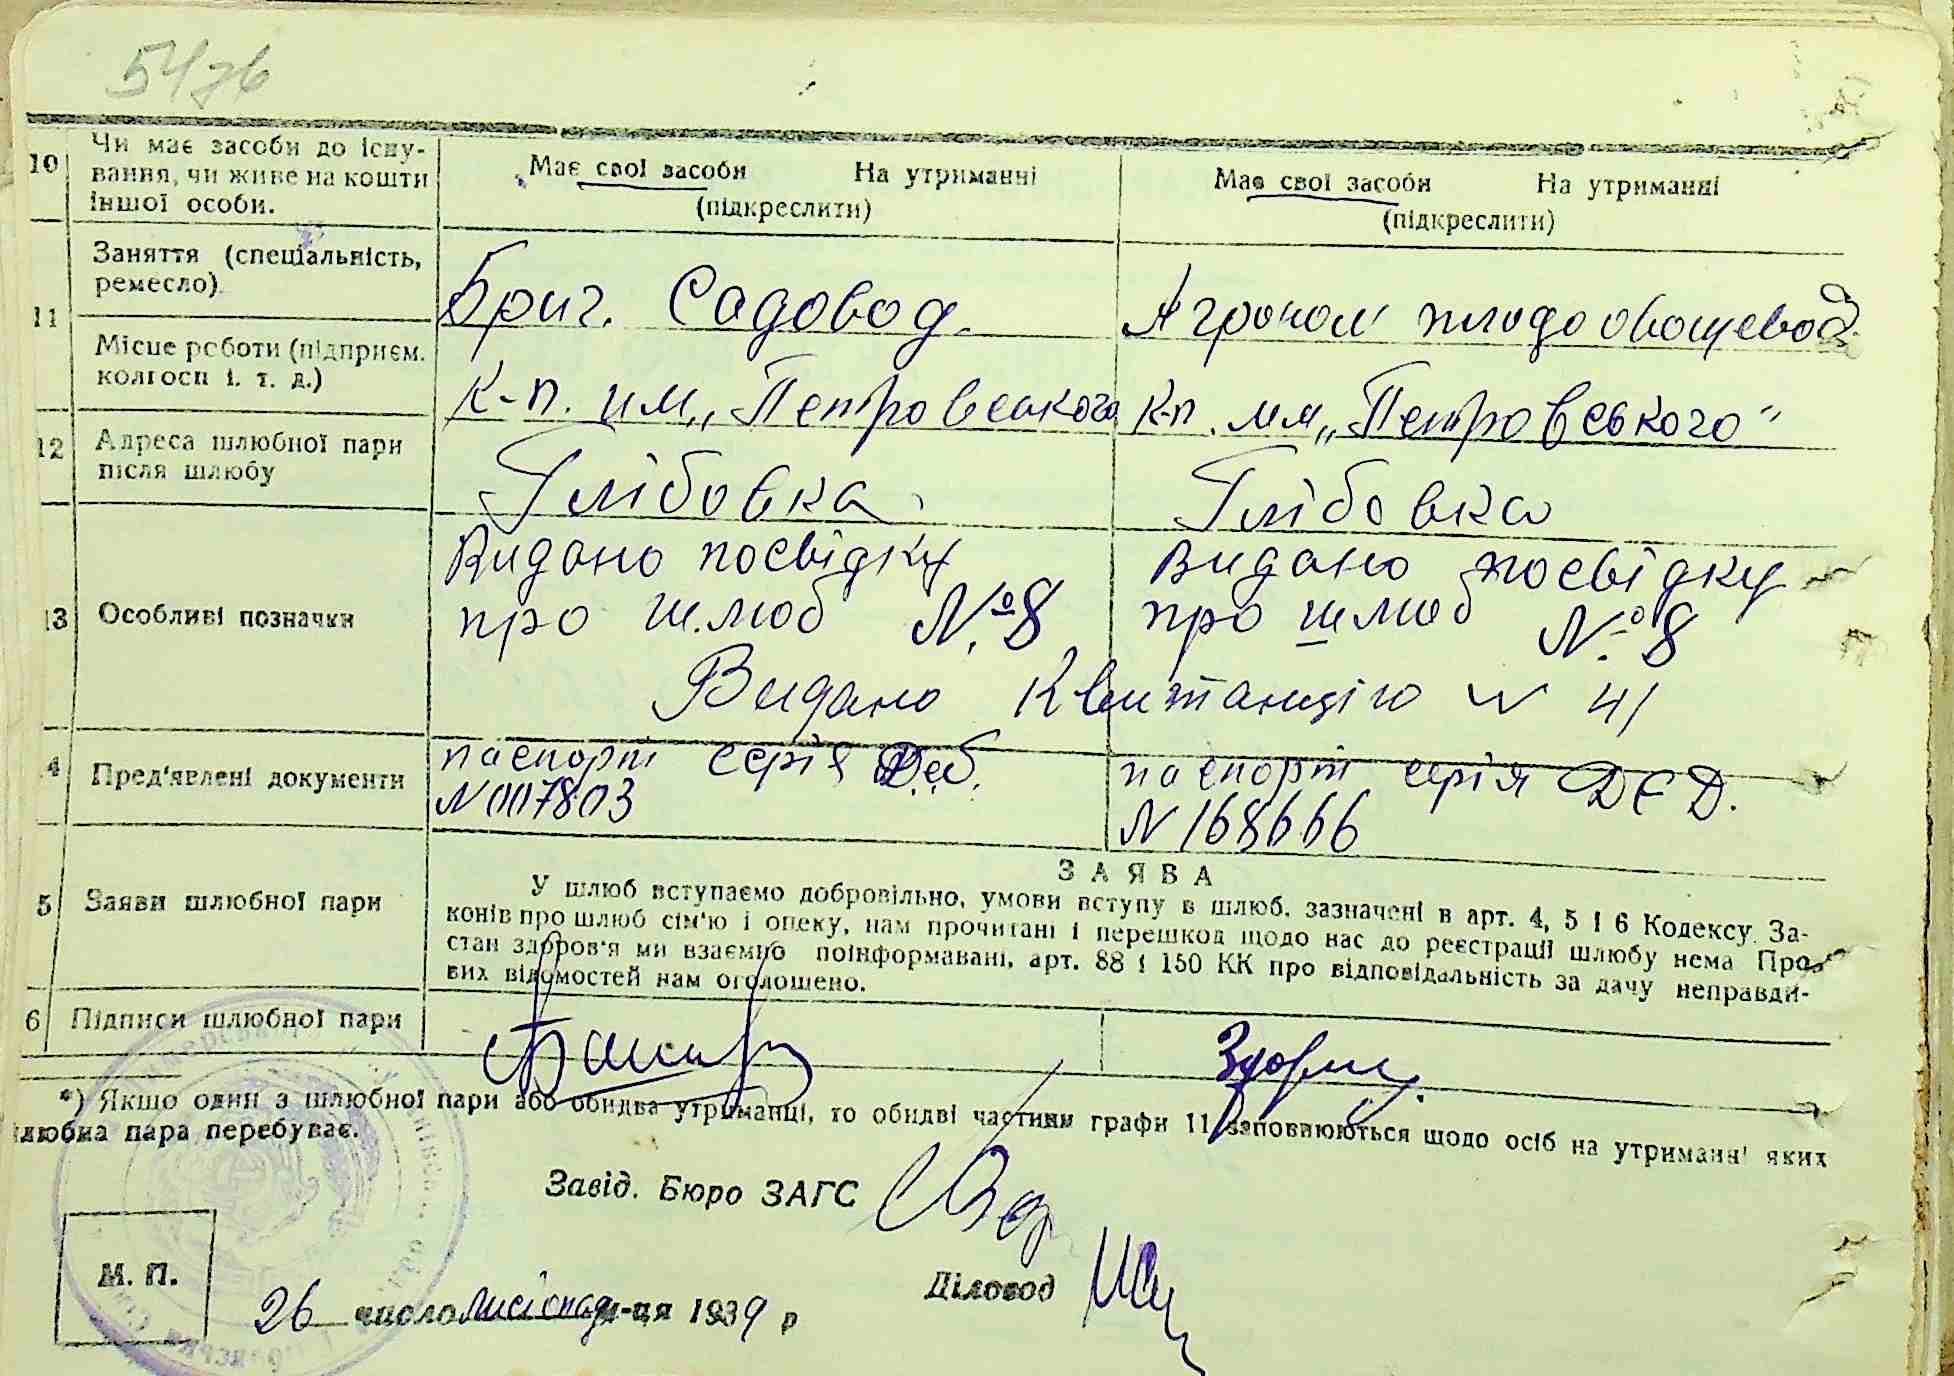 10 Чи має засоби до існу-
вання, чи живе на кошти
іншої особи.
Має свої засоби На утриманні
(підкреслити)
Має свої засоби На утриманні
(підкреслити)
11 Заняття (спеціальність,
ремесло)
Бриг. Садовод.
Агроном плодоовощевод.
Місце роботи (підприєм.
колгосп і. т. д.)
К-п. им „Петровського
К-п. им „Петровського"
12 Адреса шлюбної пари
після шлюбу
Глібовка
Глібовка
13 Особливі позначки
Видано посвідку
про шлюб № 8
Видано посвідку
про шлюб № 8
Видано Квитанцію N 41
4 Пред'явлені документи
паспорт серія
N 007803
паспорт серія ДЄД.
N 168666
5 Заяви шлюбної пари
ЗАЯВА
У шлюб вступаємо добровільно, умови вступу в шлюб, зазначені в арт. 4, 5 і 6 Кодексу За-
конів про шлюб сім'ю і опеку, нам прочитані і перешкод щодо нас до реєстрації шлюбу нема Про
стан здоров'я ми взаємно поінформавані, арт. 88 і 150 КК про відповідальність за дачу неправди-
вих відомостей нам оголошено.
6 Підписи шлюбної пари
*) Якщо один з шлюбної пари або обидва утриманці, то обидві частини графи 11 заповнюються щодо осіб на утриманні яких
шлюбна пара перебуває.
Завід. Бюро ЗАГС
М. П.
Діловод
26 число листопад м-ця 1939 р